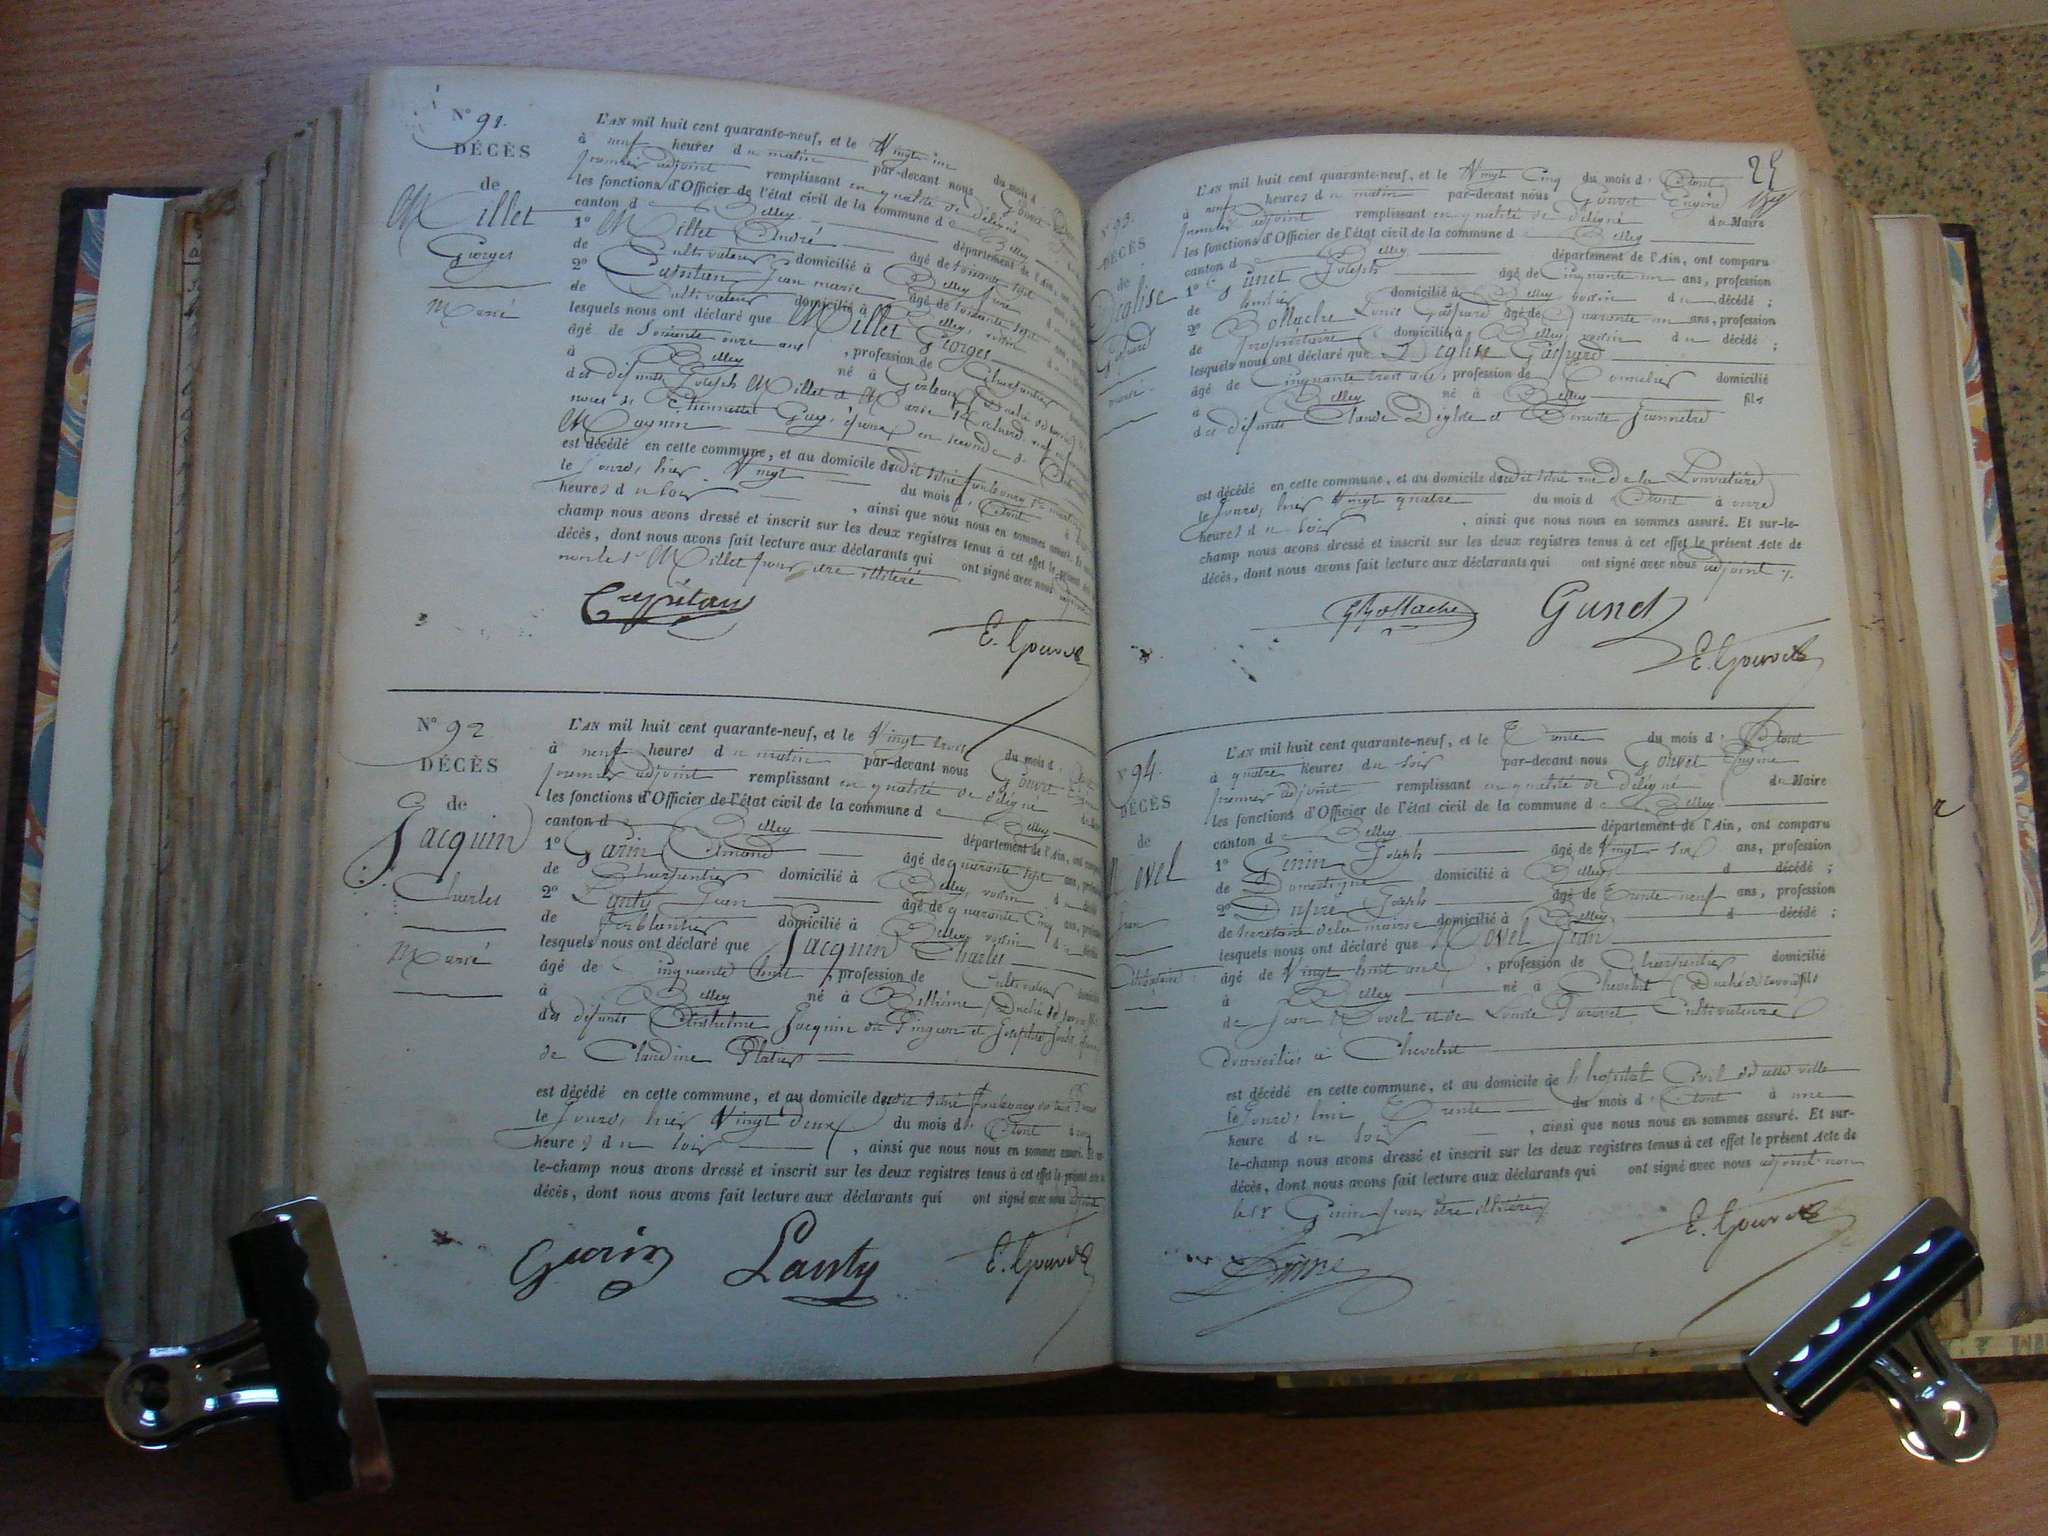 N° 91.
DÉCÈS
de
Millet
Georges
Marié
L'AN mil huit cent quarante-neuf, et le Vingt un du mois d'
à neuf heures du matin par-devant nous Gouvet
premier adjoint remplissant en qualité de délégué
les fonctions d'Officier de l'état civil de la commune de Belley
canton de Belley département de l'Ain,
1° Millet André âgé de soixante sept
de Cultivateur domicilié à Belley
2° Jean marie âgé de soixante sept
de Cultivateur domicilié à Belley, voisin
lesquels nous ont déclaré que Millet Georges
âgé de soixante onze ans, profession de
à Belley né à
des défunts Joseph Millet et Marie
Guy, époux en secondes
Magnin
est décédé en cette commune, et au domicile dudit situé
le jour, hier Vingt du mois d'Août
heures du soir, ainsi que nous nous en sommes assuré.
champ nous avons dressé et inscrit sur les deux registres tenus à cet effet le présent
décès, dont nous avons fait lecture aux déclarants qui ont signé avec nous
non le Sr Millet pour être illitéré
E. Gouvet
N° 92
DÉCÈS
de
Jacquin
Charles
Marié
L'AN mil huit cent quarante-neuf, et le Vingt trois du mois d'
à neuf heures du matin par-devant nous Gouvet
premier adjoint remplissant en qualité de délégué
les fonctions d'Officier de l'état civil de la commune de Belley
canton de Belley département de l'Ain, ont comparu
1° Garin Armand âgé de quarante sept ans,
de Charpentier domicilié à Belley, voisin
2° Lanty Jean âgé de quarante Cinq ans,
de ferblantier domicilié à Belley, voisin
lesquels nous ont déclaré que Jacquin Charles
âgé de Cinquante huit, profession de Cultivateur
à Belley né à Duché de Savoie
des défunts Anthelme Jacquin dit Pingeon et Josephte
de Claudine Platier
est décédé en cette commune, et au domicile dudit situé
le jour, hier Vingt deux du mois d'Août
heures du soir, ainsi que nous nous en sommes assuré. Et
le-champ nous avons dressé et inscrit sur les deux registres tenus à cet effet le présent acte
décès, dont nous avons fait lecture aux déclarants qui ont signé avec nous adjoint
Garin Lanty E. Gouvet
25
N° 93.
DÉCÈS
de
Déglise
Gaspard
marié
L'AN mil huit cent quarante-neuf, et le Vingt Cinq du mois d'Août
à neuf heures du matin par-devant nous Gouvet Eugène
premier adjoint remplissant en qualité de délégué du Maire
les fonctions d'Officier de l'état civil de la commune de Belley
canton de Belley département de l'Ain, ont comparu
1° Gunet Joseph âgé de Cinquante un ans, profession
de domicilié à Belley, voisin du décédé;
2° Bollache Louis Gaspard âgé de Quarante un ans, profession
de propriétaire domicilié à Belley voisin du décédé;
lesquels nous ont déclaré que Déglise Gaspard
âgé de Cinquante trois ans, profession de Tonnelier domicilié
à Belley né à Belley fils
des défunts Claude Déglise et Benoite
est décédé en cette commune, et au domicile dudit situé rue de la
le jour, hier Vingt quatre du mois d'Août à onze
heures du soir, ainsi que nous nous en sommes assuré. Et sur-le-
champ nous avons dressé et inscrit sur les deux registres tenus à cet effet le présent Acte de
décès, dont nous avons fait lecture aux déclarants qui ont signé avec nous adjoint
Bollache Gunet
E. Gouvet
N° 94.
DÉCÈS
de
Jean
Célibataire
L'AN mil huit cent quarante-neuf, et le Trente du mois d'Août
à quatre heures du soir par-devant nous Gouvet Eugène
premier adjoint remplissant en qualité de délégué du Maire
les fonctions d'Officier de l'état civil de la commune de Belley
canton de Belley département de l'Ain, ont comparu
1° Genin Joseph âgé de Vingt six ans, profession
de Domestique domicilié à Belley d décédé;
2° Dupré Joseph âgé de Trente neuf ans, profession
de Secrétaire de la mairie domicilié à Belley d décédé;
lesquels nous ont déclaré que Jean
âgé de Vingt huit ans, profession de Charpentier domicilié
à Belley né à Chevelut Duché de Savoie fils
de Jean et de Louise Cultivateurs
domiciliés à Chevelut
est décédé en cette commune, et au domicile de l'hopital Civil de cette ville
le jour, Trente du mois d'Août à une
heure du soir, ainsi que nous nous en sommes assuré. Et sur-
le-champ nous avons dressé et inscrit sur les deux registres tenus à cet effet le présent Acte de
décès, dont nous avons fait lecture aux déclarants qui ont signé avec nous adjoint non
le Sr Genin pour être illitéré
E. Gouvet